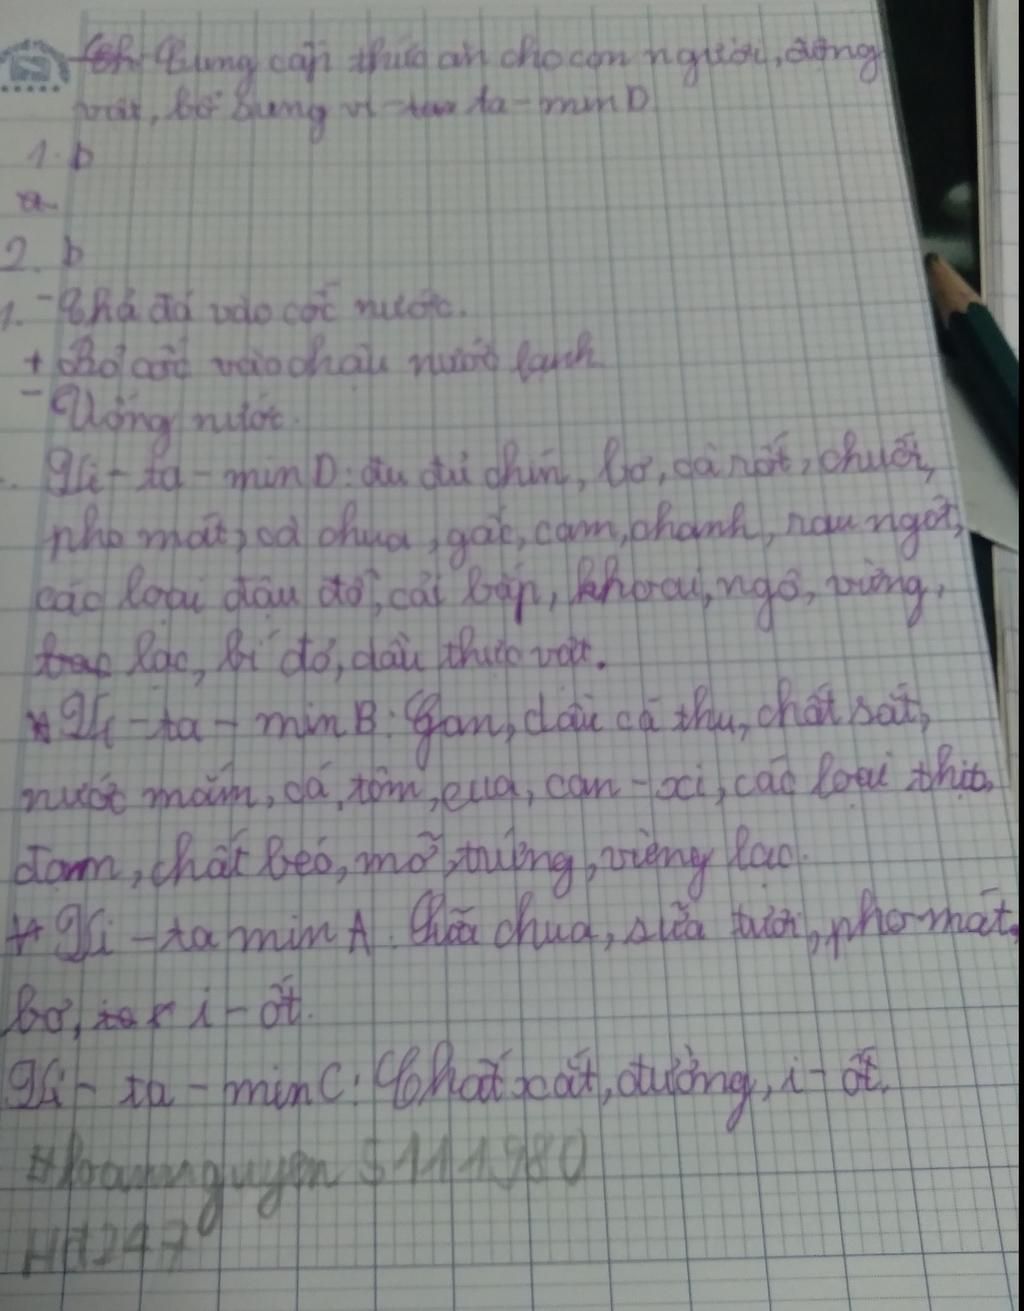 Cung cấp thức ăn cho con người, động
vật, bổ sung vi - ta - min D
1. b
a
2. b
1. - Thả đá vào cốc nước.
+ Bỏ cốc vào chậu nước lạnh
- Uống nước.
Vi - ta - min D: đu đủ chín, bơ, cà rốt, chuối,
pho mát, cà chua, gấc, cam, chanh, rau ngót,
các loại đậu đỗ, cải bắp, khoai, ngô, vừng,
lạc, bí đỏ, dầu thực vật.
* Vi - ta - min B: Gan, dầu cá thu, chất sắt,
nước mắm, cá, tôm, cua, can - xi, các loại thịt,
đạm, chất béo, mỡ, trứng, vừng lạc.
+ Vi - ta min A. Sữa chua, sữa tươi, pho mát,
bơ, i - ốt.
Vi - ta - min C: Chất xát, đường, i - ốt.
Hoannguyen 5111980
HH247